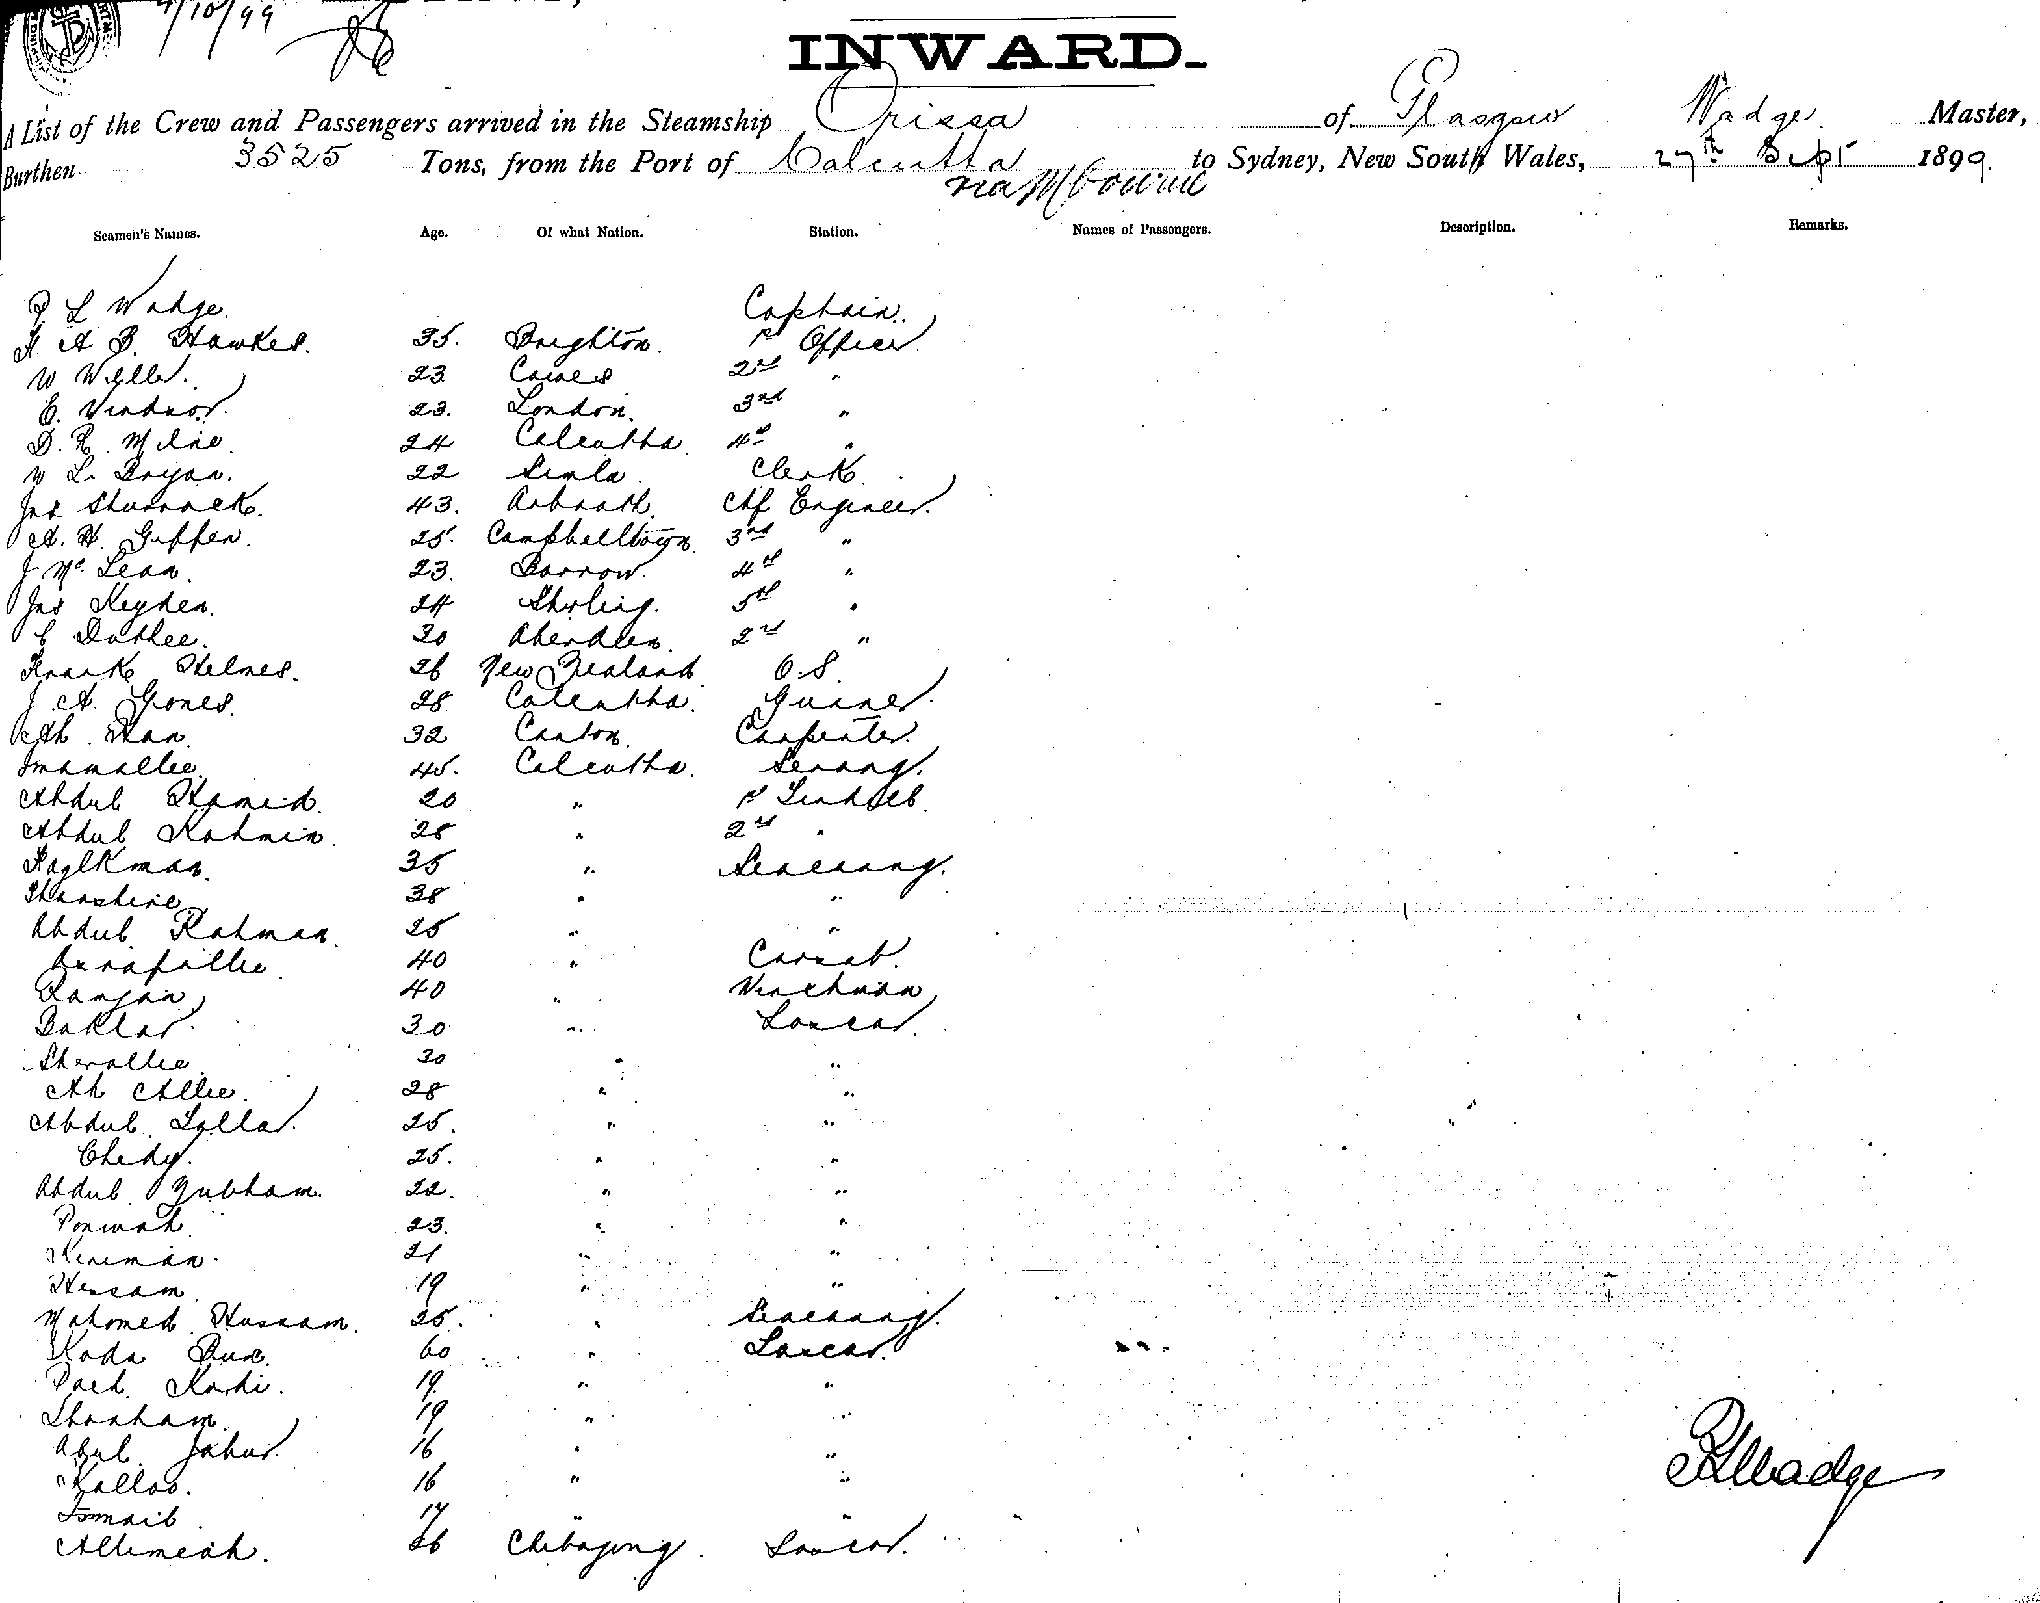 4/10/99
INWARD.
A List of the Crew and Passengers arrived in the Steamship Orissa of Glasgow Wadge Master,
Burthen 3525 Tons, from the Port of Calcutta to Sydney, New South Wales, 27th Sept 1899.
via Mbourne
Seamen's Names. Age. Of what Nation. Station. Names of Passengers. Description. Remarks.
L Wadge. Captain.
A B. Hawkes. 35. Brighton. 1st Officer
W Wyllie. 23 Cowes 2nd "
E. Windsor. 23. London. 3rd "
D. R. Milne. 24 Calcutta 4th "
W L. Bryan. 22 Simla Clerk
Jas Sturrock. 43. Arbroath. Chf Engineer.
A. H. Giffen. 25. Campbelltown. 3rd "
J McLean. 23. Barrow. 4th "
Jas Heyden. 24 Stirling. 5th "
C Duthie. 30 Aberdeen. 2nd "
Frank Helmes. 26 New Zealand O.S.
J A. Jones. 28 Calcutta. Gunner.
Ah Han. 32 Canton. Carpenter.
Imamallie. 45. Calcutta. Serang.
Abdul Hamid. 20 " 1st Tindall
Abdul Rahmin. 28 " 2nd "
35 " Seacunny.
38 " "
Abdul Rahman. 25 " "
40 " Cassab.
Ramjan 40 " Winchman
Boktar. 30 " Lascar.
Sherallie 30 " "
Ah Allie. 28 " "
Abdul Lallar. 25. " "
Chedy. 25. " "
Abdul Gubham. 22. " "
23. " "
21 " "
Hessam 19 " "
Mahomed Hussam. 25. " Seacunny.
Koda Bux. 60 " Lascar.
19. " "
19 " "
Abul Jabur. 16 " "
Kalloo. 16 " "
Ismail 17 " "
Allimeah. 26 Chitagong. Lascar.
RLWadge